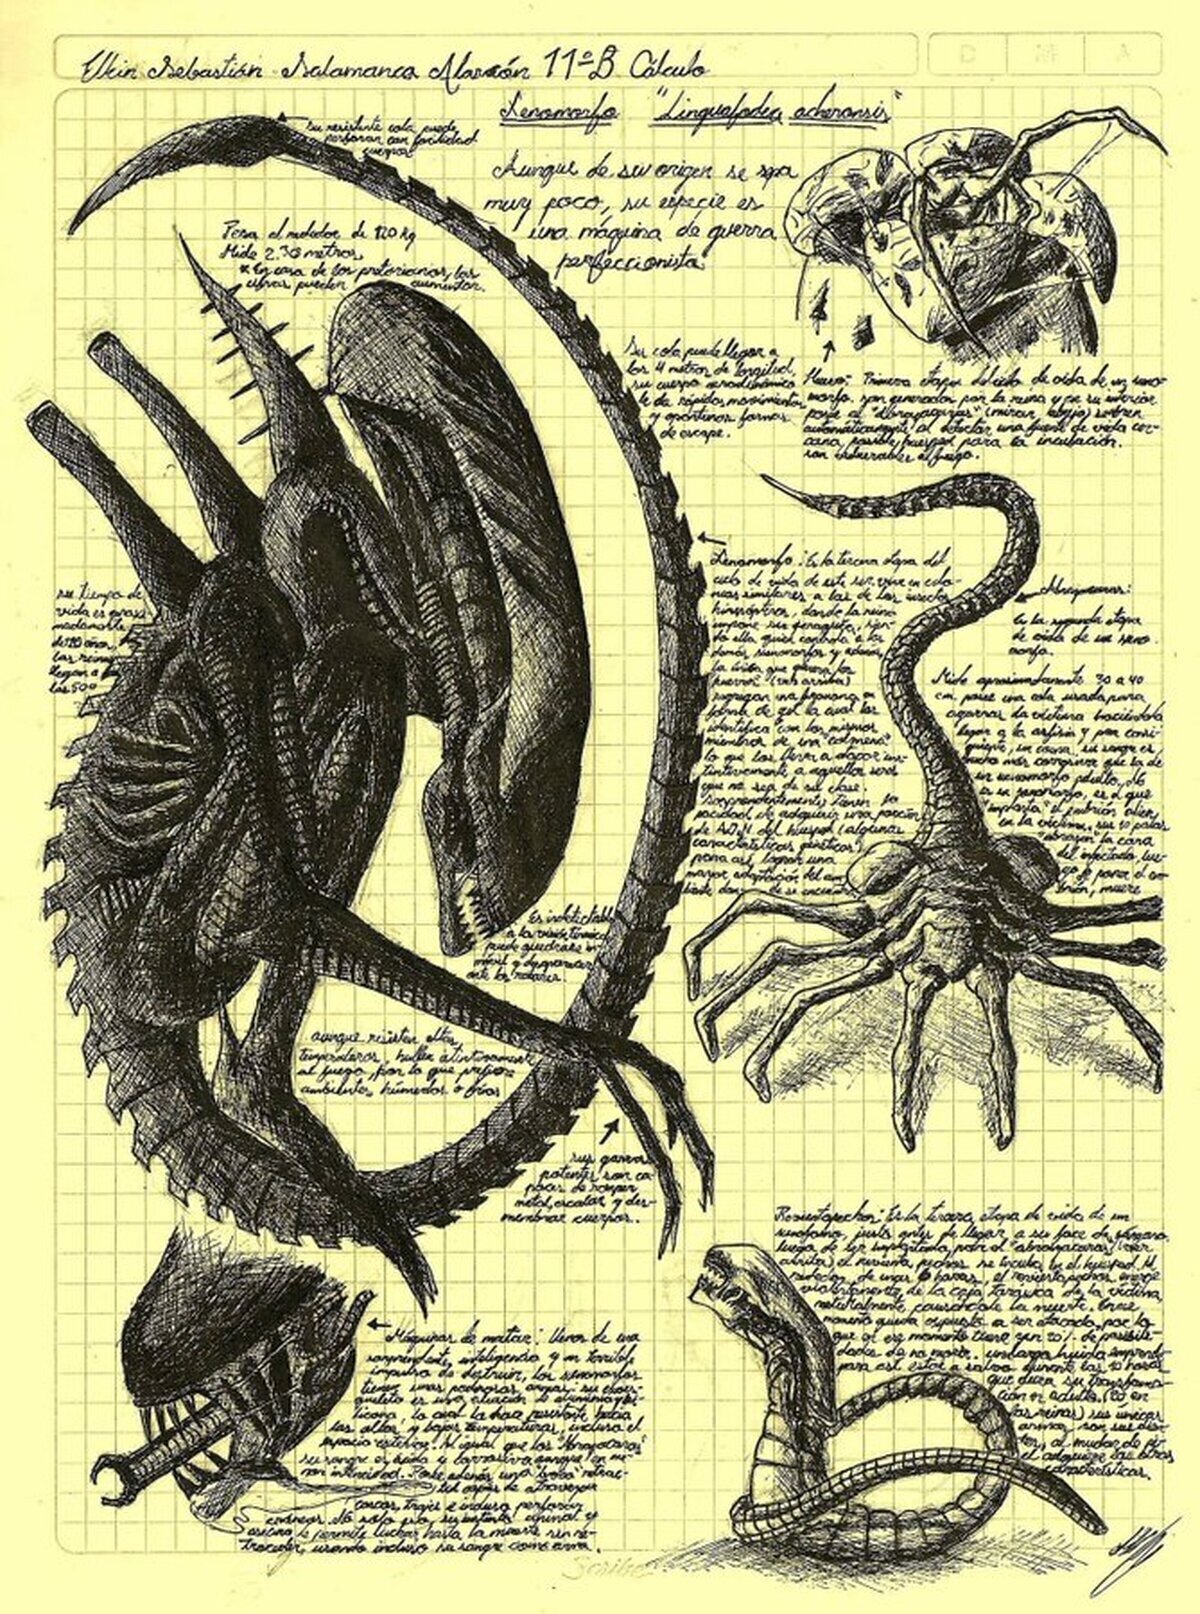 Elkin Sebastián Salamanca Alarcón 11ºB Cálculo
D M A
Xenomorfo "Linguafoeda acheronsis"
su resistente cola puede
perforar con facilidad
cuerpos
Aunque de su origen se spa
muy poco, su especie es
una máquina de guerra
perfeccionista
Pesa al rededor de 120 kg
Mide 2.30 metros
* En caso de los pretorianos, las
cifras pueden aumentar.
Su cola puede llegar a
los 4 metros de longitud,
su cuerpo aerodinámico
le da rápidos movimientos
y oportunas formas
de escape.
Huevo: Primera etapa del ciclo de vida de un xeno-
morfo. son generados por la reina y en su interior
posee al "Abrazacaras" (mirar abajo) se abren
automáticamente al detectar una fuente de vida cer-
cana, posible huésped para la incubación.
son vulnerables al fuego.
su tiempo de
vida es aproxi-
madamente
las reinas
llegan a
los 500
Xenomorfo: Es la tercera etapa del
ciclo de vida de este ser. vive en colo-
nias similares a las de los insectos
himenópteros, donde la reina
impone su jerarquía, sien-
do ella quien controla a los
demás xenomorfos y además,
la única que genera los
huevos (ver arriba)
segregan una feromona en
forma de gel la cual los
identifica con los mismos
miembros de una "colmena"
lo que los lleva a atacar ins-
tintivamente a aquellos seres
que no sea de su clase.
Sorprendentemente, tienen la
capacidad de adquirir una porción
de ADN del huésped (algunas
características genéticas)
para así, lograr una
mayor adaptación del am-
biente donde se encuentra
Abrazacaras:
Es la segunda etapa
de vida de un xeno-
morfo.
Mide aproximadamente 30 a 40
cm. posee una cola usada para
agarrar la víctima haciéndola
llegar a la asfixia y por consi-
guiente, un coma. su sangre es
mucho más corrosiva que la de
un xenomorfo adulto.
es el que
"implanta" el embrión alien
en la víctima. sus 10 patas
"abrazan" la cara
del infectado, lue-
go de poner el em-
brión, muere
Es indetectable
a la visión térmica
puede quedarse in-
móvil y desaparecer
ante los radares.
aunque resisten altas
temperaturas, hullen instintivamente
al fuego, por lo que prefiere
ambientes húmedos o fríos
sus garras
potentes son ca-
paces de romper
metal, escalar y des-
membrar cuerpos.
Revientapechos: Es la tercera etapa de vida de un
xenomorfo, justo antes de llegar a su fase de
luego de ser implantado por el "abrazacaras" (ver
arriba) el revienta pechos se incuba en el huésped.
de unas horas, el revienta pechos emerge
violentamente de la caja torácica de la víctima,
naturalmente causándole la muerte. En ese
momento queda expuesto a ser atacado, por lo
que en ese momento tiene un 20% de posibili-
dades de no morir. su larga huida emprende
para así estar a salvo durante las 10 horas
que dura su transforma-
ción en adulto. (20 en
las reinas) sus únicas
armas son sus dien-
tes, al mudar de pi-
el adquiere las otras
características.
Máquinas de matar: llenos de una
sorprendente inteligencia y un terrible
impulso de destruir, los xenomorfos
tienen unas poderosas armas. su exoes-
queleto es una aleación
licona, lo cual la hace resistente hacia
las altas y bajas temperaturas, incluso el
espacio exterior. Al igual que los "Abrazacaras"
su sangre es ácida y corrosiva aunque en me-
nor intensidad. Posee además una boca retrac-
til capaz de atravesar
cascos, trajes e incluso perforar
asesino le permite luchar hasta la muerte sin re-
troceder, usando incluso su sangre como arma.
Scribe